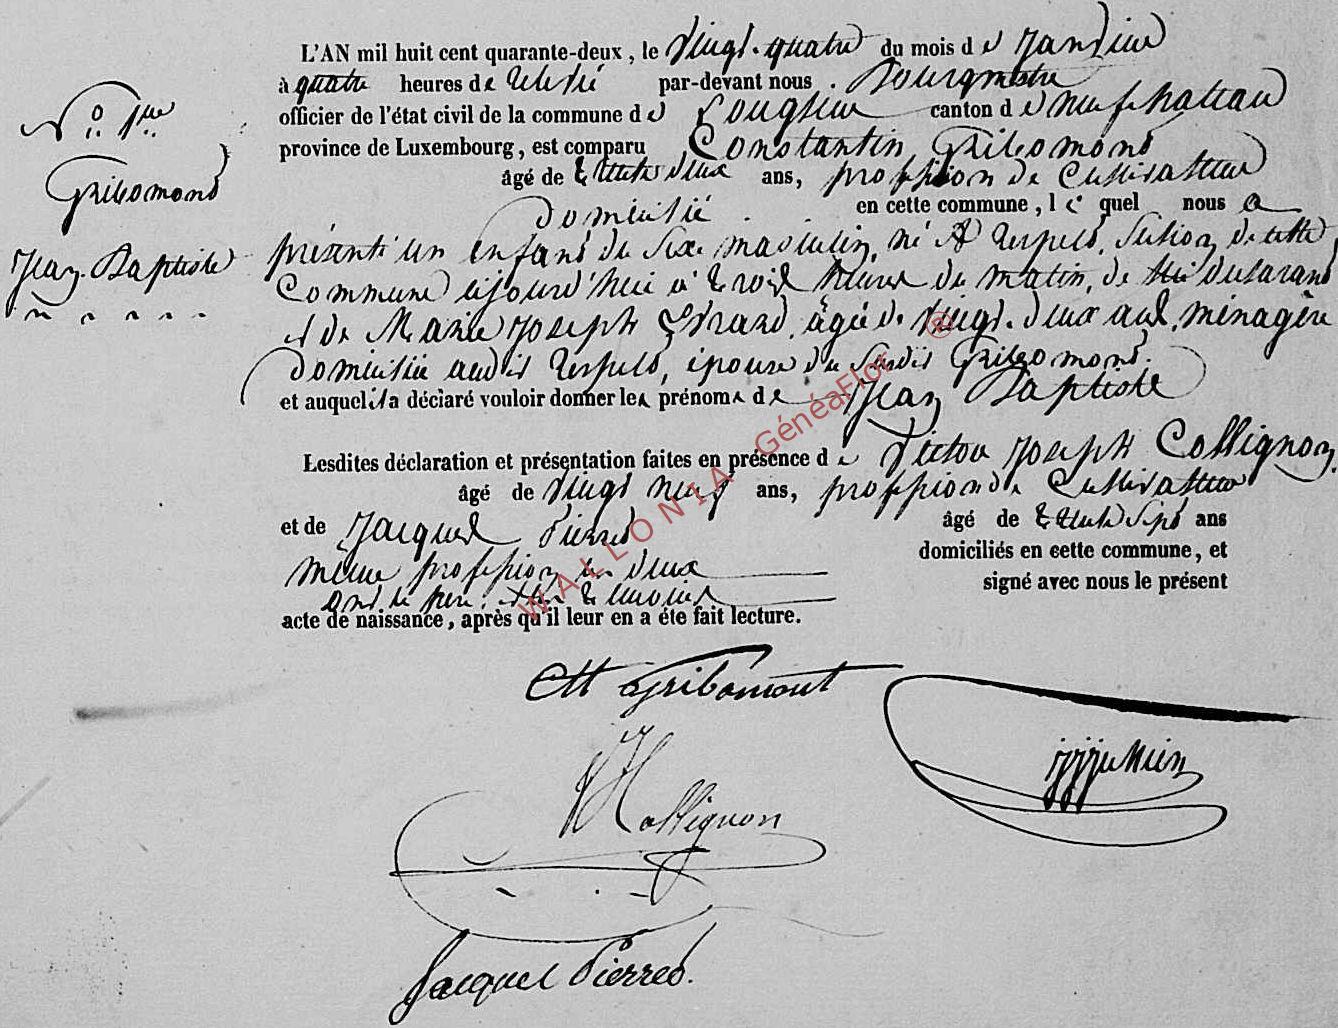 L'AN mil huit cent quarante-deux, le vingt-quatre du mois de Janvier
à quatre heures de relevé par-devant nous Bourgmestre
officier de l'état civil de la commune de Longlier canton de neufchateau
province de Luxembourg, est comparu Constantin Gribomont
âgé de trente deux ans, profession de Cultivateur
domicilié en cette commune, lequel nous a
présenté un enfant du sexe masculin, né à Respelt, section de cette
Commune aujourd'hui à trois heures du matin, de lui déclarant
et de Marie Joseph Evrard, âgée de vingt-deux ans, ménagère
domiciliée audit Respelt, épouse du susdit Gribomont.
et auquel il a déclaré vouloir donner les prénoms de Jean Baptiste
Lesdites déclaration et présentation faites en présence de Victor Joseph Collignon,
âgé de vingt neuf ans, profession de Cultivateur
et de Jacques Pierred âgé de trente sept ans
même profession tous deux domiciliés en cette commune, et
ont le père et les témoins signé avec nous le présent
acte de naissance, après qu'il leur en a été fait lecture.
N° 1er
Gribomont
Jean-Baptiste
Gribomont
Collignon
Jacques Pierred.
WALLONIA GénéaFlor ®